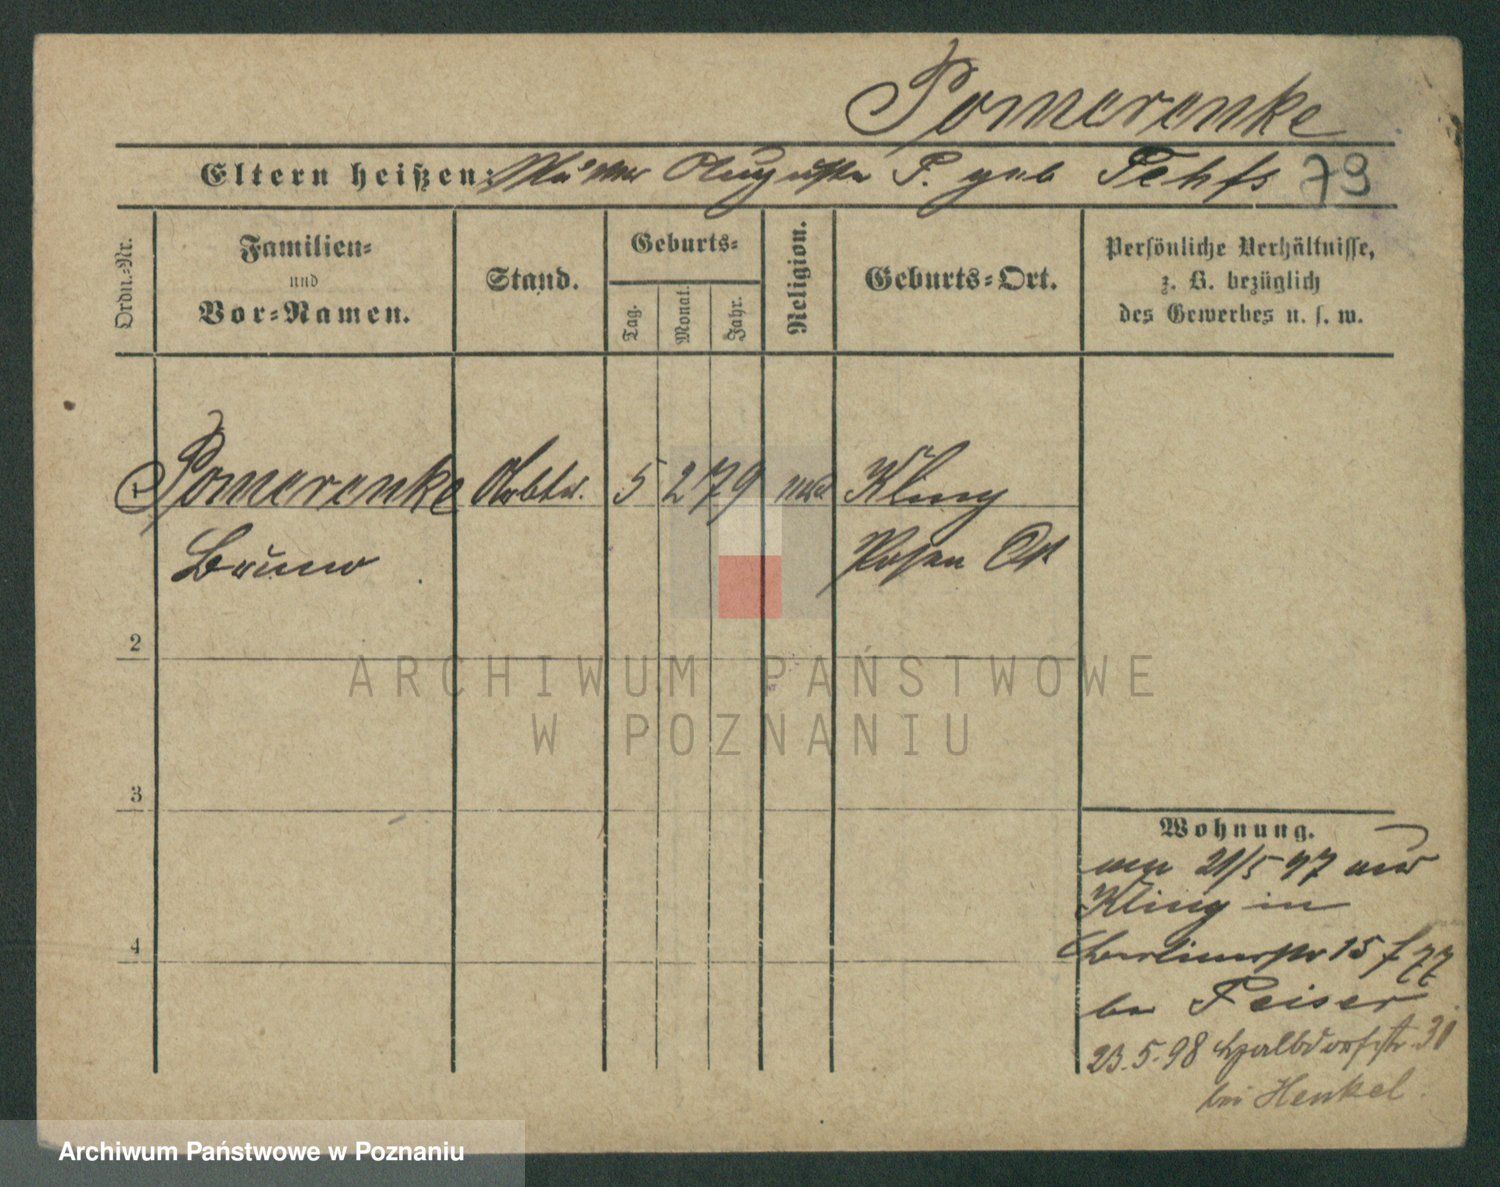 Pomerenke
Eltern heißen: Mutter Auguste P. geb 79
Ordn.-Nr.
Familien-
und
Vor-Namen.
Stand.
Geburts-
Tag.
Monat.
Jahr.
Religion.
Geburts-Ort.
Persönliche Verhältnisse,
z. B. bezüglich
des Gewerbes u. s. w.
1 Pomerenke Arbtr. 5 2 79 Kliny
Bruno Posen Ost
2
3
4
Wohnung.
21/5 97 aus
Kliny in
Berlinerstr 15
bei Peiser
23.5.98 Halbdorfstr 31
bei Henkel.
ARCHIWUM PAŃSTWOWE
W POZNANIU
Archiwum Państwowe w Poznaniu